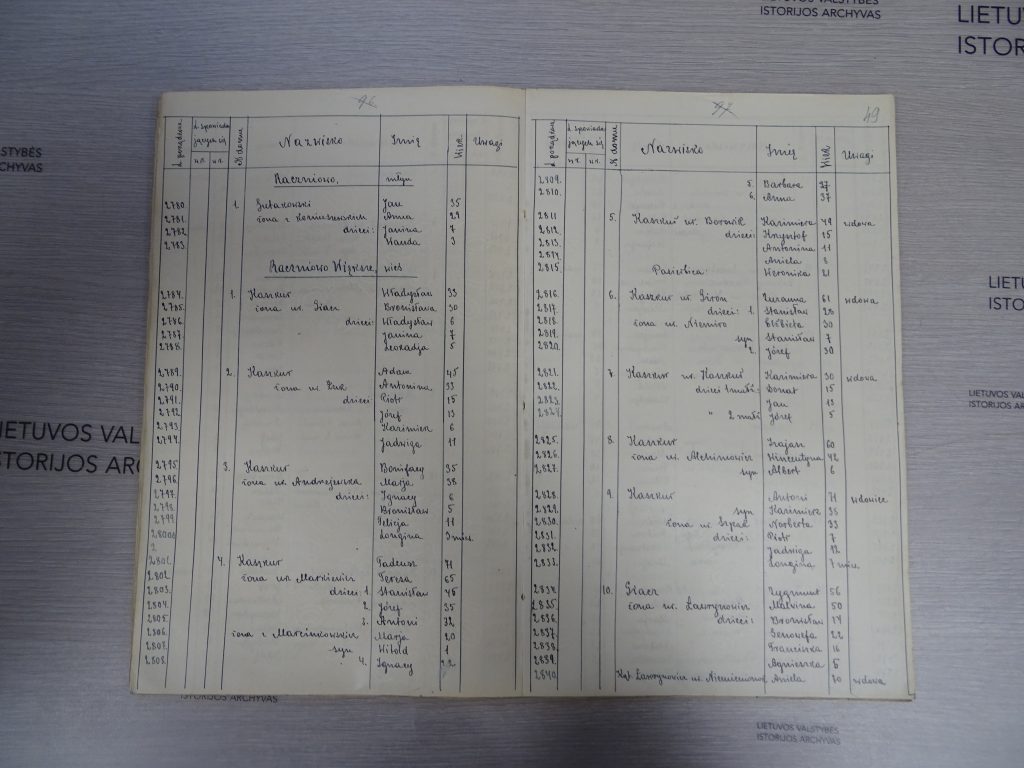 LIETUVOS VALSTYBĖS
ISTORIJOS ARCHYVAS
LIETU
ISTOR
96
L. porządkowa
L. spowiadających się
N domu
Nazwisko
Imię
Wiek
Uwagi
Raczniowo, młyn
2780. 1. Jan 35
2781. żona z Anna 29
2782 dzieci: Janina 7
2783 Wanda 3
Raczniowo Większe, wieś
2784. 1. Kaszkur Władysław 33
2785. żona ur. Giacz Bronisława 30
2786 dzieci: Władysław 6
2787 Janina 7
2788. Leokadja 5
2789. 2. Kaszkur Adam 45
2790. żona ur. Żuk Antonina 33
2791. dzieci Piotr 15
2792 Józef 13
2793. Kazimierz 6
2794. Jadwiga 11
2795 3. Kaszkur Bonifacy 35
2796. żona ur. Andrzejewska Marja 38
2797. dzieci: Ignacy 6
2798. Bronisław 5
2799 Felicja 11
2800 Longina 3 mies.
2801. 4. Kaszkur Tadeusz 71
2802. żona ur. Markiewicz Teresa 65
2803. dzieci: 1. Stanisław 46
2804. 2 Józef 35
2805. 3. Antoni 32
2806. żona z Marcinkowskich Marja 20
2807. syn Witold 1
2808. 4. Ignacy 22
97
49
L. porządkowa
L. spowiadających się
N domu
Nazwisko
Imię
Wiek
Uwagi
2809. 5. Barbara 27
2810. 6. Anna 37
2811 5. Kaszkur ur. Borowik Kazimiera 49 wdowa
2812. dzieci: Krzysztof 15
2813. Antonina 11
2814. Aniela 8
2815. Pasierbica: Weronika 21
2816. 6. Kaszkur ur. Giron Zuzanna 61 wdowa
2817. dzieci: 1. Stanisław 28
2818. żona ur. Niemiro Elżbieta 30
2819. syn Stanisław 7
2820. 2. Józef 30
2821. 7. Kaszkur ur. Kaszkur Kazimiera 30 wdowa
2822. dzieci 1 męża: Donat 15
2823. Jan 13
2824. " 2 męża Józef 5
2825. 8. Kaszkur Trajan 60
2826. żona ur. Alchimowicz Wincentyna 42
2827. syn Albert 6
2828. 9. Kaszkur Antoni 71 wdowiec
2829. syn Kazimierz 35
2830. żona ur. Szpak Norberta 33
2831. dzieci: Piotr 7
2832. Jadwiga 12
2833. Longina 7 mies.
2834. 10. Giacz Zygmunt 56
2835. żona ur. Ławrynowicz Malwina 50
2836. dzieci: Bronisław 14
2837. Genowefa 22
2838. Franciszka 16
2839. Agnieszka 5
2840. Ławrynowicz ur. Aniela 80 wdowa
STYBĖS
CHYVAS
LIETUVOS VAL
STORIJOS ARCH
LIETU
ISTO
LIETUVOS VALSTYB
ISTORIJOS ARCHYVA
ISTORIJOS ARCHYVAS
LIETUVOS VALSTYBĖS
ISTORIJOS ARCHYVAS